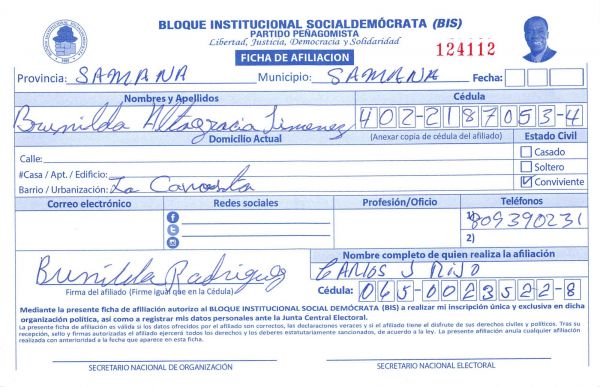 BLOQUE INSTITUCIONAL SOCIALDEMÓCRATA (BIS)
PARTIDO PEÑAGOMISTA
Libertad, Justicia, Democracia y Solidaridad
124112
FICHA DE AFILIACION
Provincia: SAMANA Municipio: SAMANA Fecha:
Nombres y Apellidos Cédula
Brunilda Altagracia Jimenez 402-2187053-4
Domicilio Actual (Anexar copia de cédula del afiliado) Estado Civil
Calle: Casado
#Casa / Apt. / Edificio: Soltero
Barrio / Urbanización: La Conviviente
Correo electrónico Redes sociales Profesión/Oficio Teléfonos
1) 809390231
2)
Nombre completo de quien realiza la afiliación
Brunilda Rodriguez CARLOS J RIJO
Firma del afiliado (Firme igual que en la Cédula) Cédula: 065-0023522-8
Mediante la presente ficha de afiliación autorizo al BLOQUE INSTITUCIONAL SOCIAL DEMÓCRATA (BIS) a realizar mi inscripción única y exclusiva en dicha
organización política, así como a registrar mis datos personales ante la Junta Central Electoral.
La presente ficha de afiliación es válida si los datos ofrecidos por el afiliado son correctos, las declaraciones veraces y si el afiliado tiene el disfrute de sus derechos civiles y políticos. Tras su
recepción, sello y firmas autorizadas el afiliado ejercerá todos los derechos y los deberes estatutariamente sancionados, de acuerdo a la ley. La presente afiliación anula cualquier afiliación
realizada con anterioridad a la fecha que aparece en esta ficha.
SECRETARIO NACIONAL DE ORGANIZACIÓN SECRETARIO NACIONAL ELECTORAL